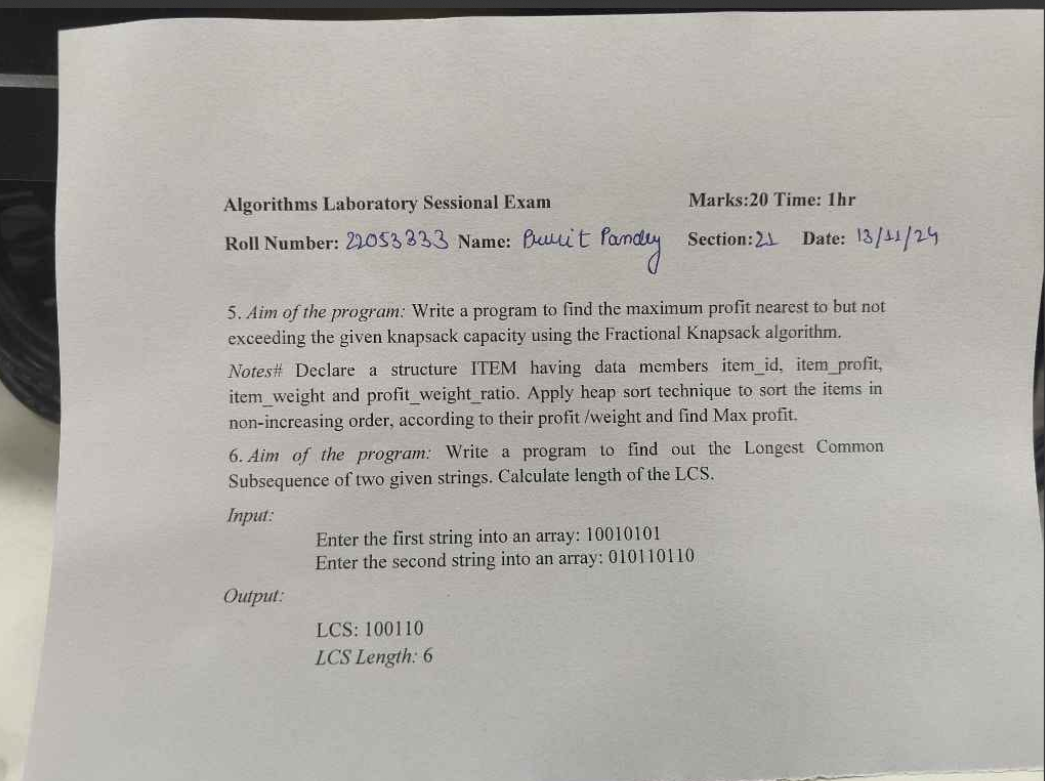 Algorithms Laboratory Sessional Exam Marks:20 Time: 1hr
Roll Number: 22053333 Name: Pandey Section:21 Date: 13/11/24
5. Aim of the program: Write a program to find the maximum profit nearest to but not
exceeding the given knapsack capacity using the Fractional Knapsack algorithm.
Notes# Declare a structure ITEM having data members item_id, item_profit,
item_weight and profit_weight_ratio. Apply heap sort technique to sort the items in
non-increasing order, according to their profit /weight and find Max profit.
6. Aim of the program: Write a program to find out the Longest Common
Subsequence of two given strings. Calculate length of the LCS.
Input:
Enter the first string into an array: 10010101
Enter the second string into an array: 010110110
Output:
LCS: 100110
LCS Length: 6